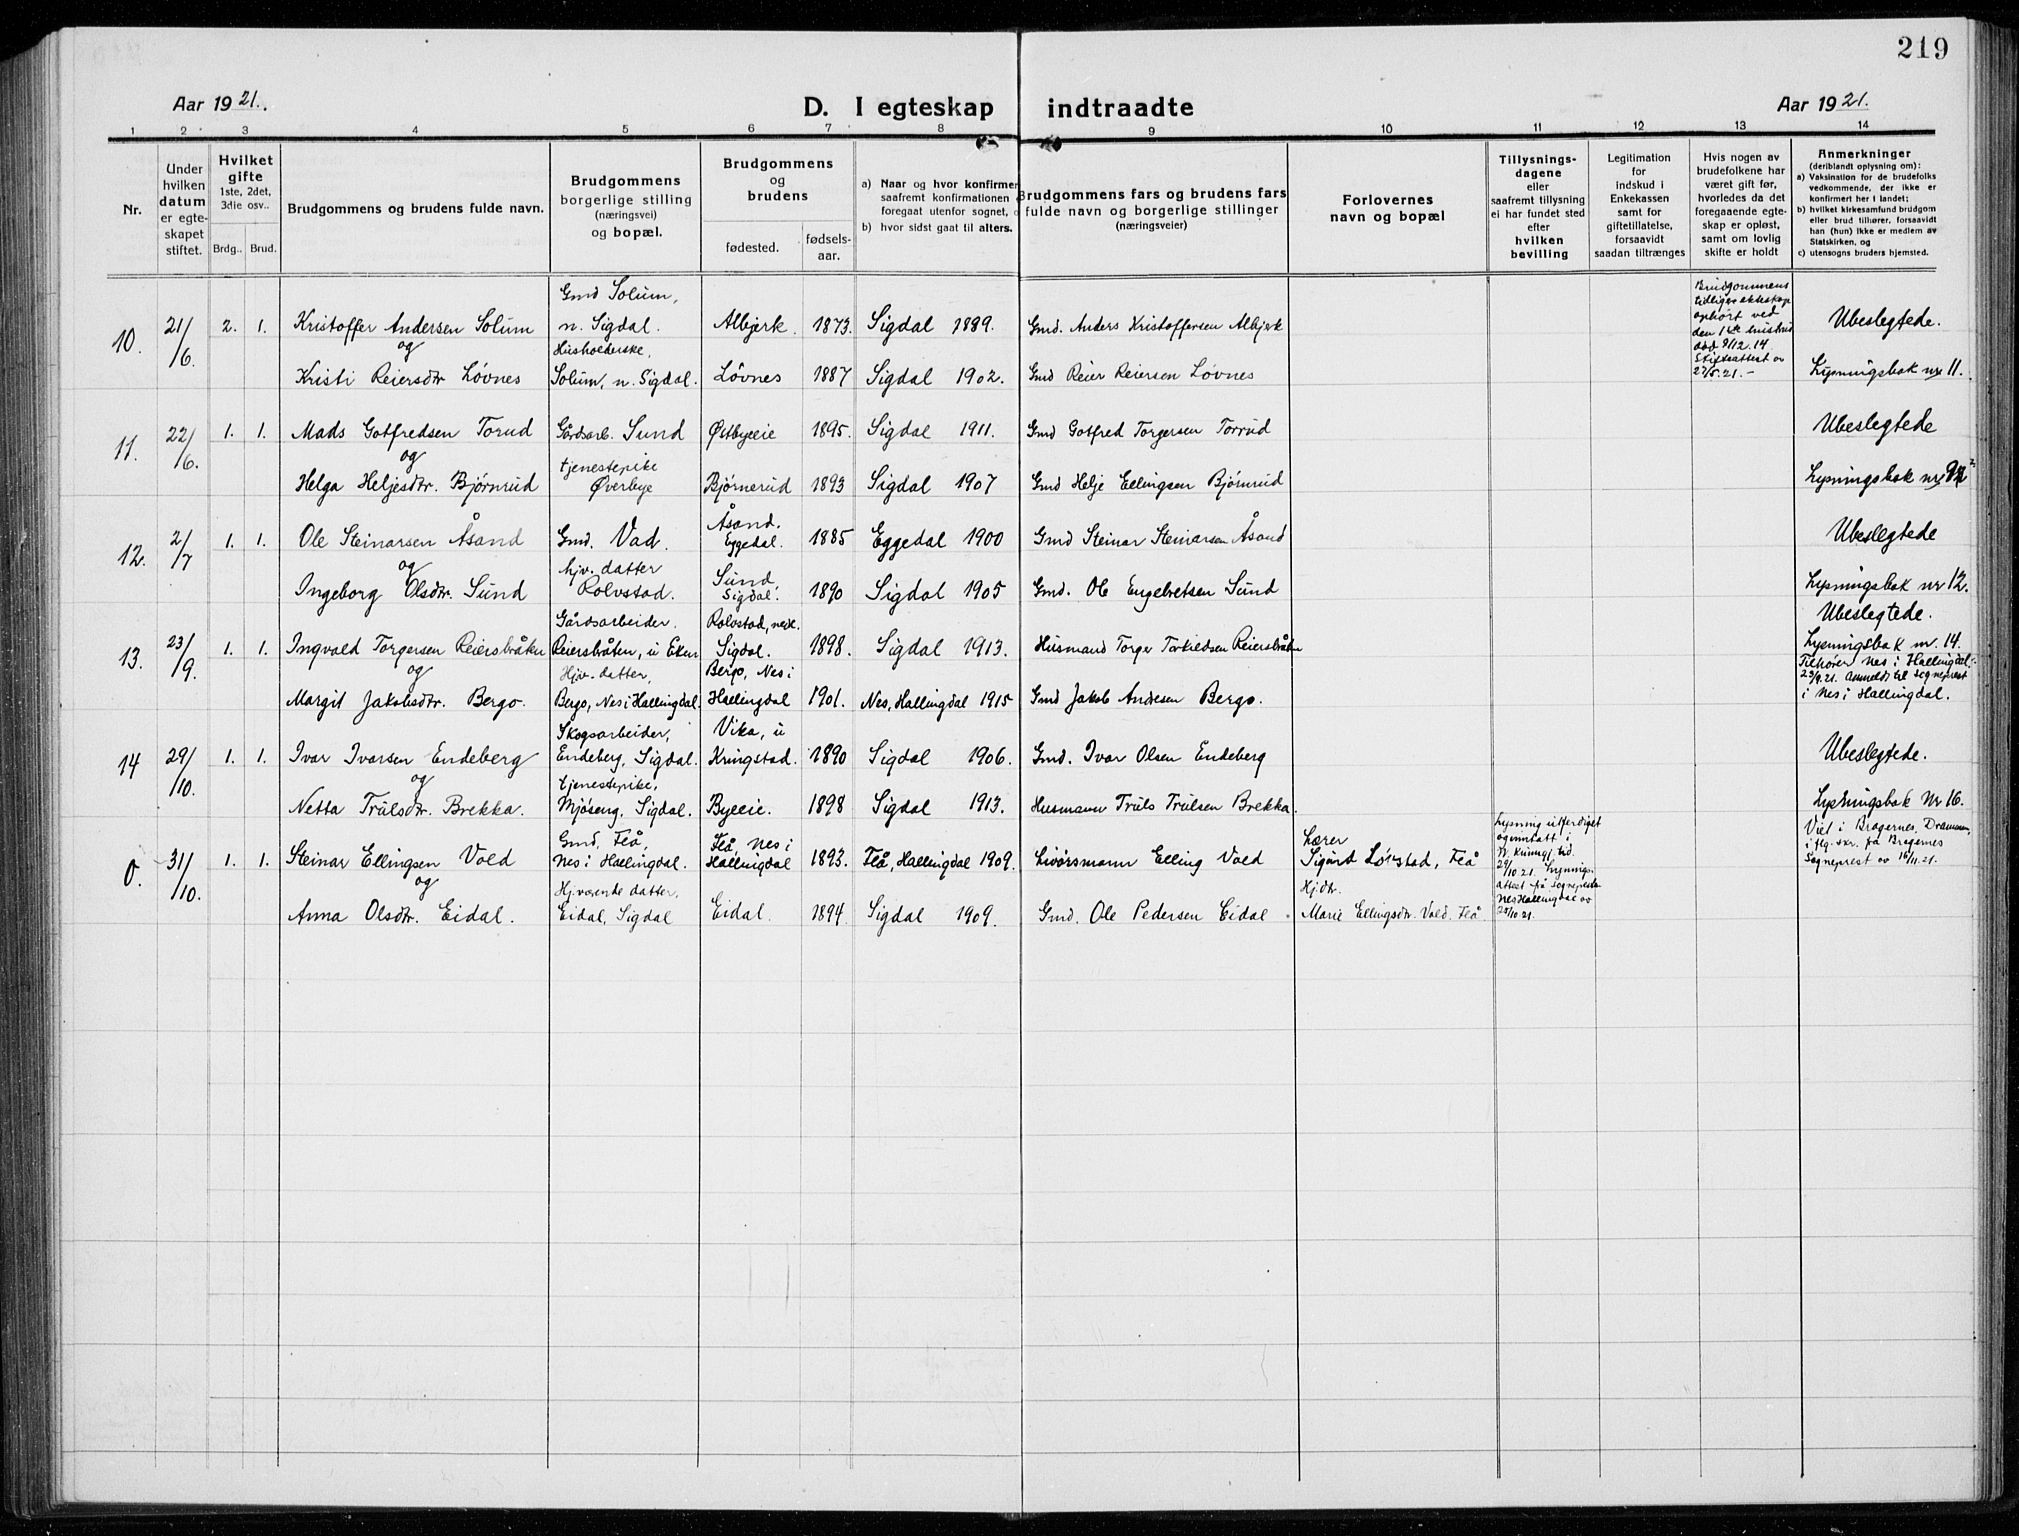 219
Aar 1921.
D. I egteskap indtraadte
Aar 1921.
1 2 3 4 5 6 7 8 9 10 11 12 13 14
Nr.
Under
hvilken
datum
er egte-
skapet
stiftet.
Hvilket
gifte
1ste, 2det,
3die osv..
Brdg.. Brud.
Brudgommens og brudens fulde navn.
Brudgommens
borgerlige stilling
(næringsvei)
og bopæl.
Brudgommens
og
brudens
fødested.
fødsels-
aar.
a) Naar og hvor konfirmer
saafremt konfirmationen
foregaat utenfor sognet,
b) hvor sidst gaat til alters.
Brudgommens fars og brudens fars
fulde navn og borgerlige stillinger
(næringsveier)
Forlovernes
navn og bopæl
Tillysnings-
dagene
eller
saafremt tillysning
ei har fundet sted
efter
hvilken
bevilling
Legitimation
for
indskud i
Enkekassen
samt for
giftetillatelse,
forsaavidt
saadan tiltrænges
Hvis nogen av
brudefolkene har
været gift før,
hvorledes da det
foregaaende egte-
skap er opløst,
samt om lovlig
skifte er holdt
Anmerkninger
(deriblandt oplysning om):
a) Vaksination for de brudefolks
vedkommende, der ikke er
konfirmert her i landet;
b) hvilket kirkesamfund brudgom
eller brud tilhører, forsaavidt
han (hun) ikke er medlem av
Statskirken, og
c) utensogns bruders hjemsted.
10. 21/6. 2. 1.
Kristoffer Andersen Solum
og
Kristi Reiersdtr Løvnes
Gmd Solum,
n. Sigdal.
Husholderske,
Solum, n. Sigdal.
Albjerk. 1873. Sigdal 1889. Gmd. Anders Kristoffersen Albjerk
Løvnes 1887 Sigdal 1902. Gmd Reier Reiersen Løvnes
Brudgommens
tidligere ekteskap
ophørt ved
den 1ste hustrus
død 9/12.14.
Skifteattest av
27/5.21.-
Ubeslegtede.
Lysningsbok nr 11.
11. 22/6. 1. 1.
Mads Gotfredsen Torud
og
Helga Heljesdtr. Bjørnrud
Gårdsarb. Sund
tjenestepike
Øverbye
Østbyeie 1895. Sigdal 1911. Gmd Gotfred Torgersen Torrud
Bjørnerud 1893 Sigdal 1907 Gmd Helje Ellingsen Bjørnrud
Ubeslegtede
Lysningsbok nr
12. 2/7 1. 1.
Ole Steinarsen Åsand
og
Ingeborg Olsdtr. Sund
Gmd. Vad.
hjv. datter
Rolvstad.
Åsand.
Eggedal. 1885 Eggedal 1900 Gmd Steinar Steinarsen Åsand
Sund,
Sigdal. 1890 Sigdal 1905 Gmd. Ole Engebretsen Sund
Ubeslegtede
Lysningsbok nr 12.
13. 23/9. 1. 1.
Ingvald Torgersen Reiersbråten
og
Margit Jakobsdtr. Bergo.
Gårdsarbeider.
Reiersbråten, u Eken
Hjv. datter,
Bergo, Nes i Hallingdal.
Rolvstad, nedl.
Sigdal. 1898. Sigdal 1913. Husmand Torger Torkildsen Reiersbråten
Bergo, Nes i
Hallingdal 1901. Nes, Hallingdal 1915 Gmd Jakob Andresen Bergo.
Ubeslegtede.
Lysningsbok nr. 14.
Tilhører Nes i Hallingdal.
23/9.21. anmeldt til sogneprest
i Nes i Hallingdal.
14 29/10. 1. 1.
Ivar Ivarsen Endeberg
og
Netta Trulsdtr. Brekka.
Skogsarbeider,
Endeberg, Sigdal.
tjenestepike,
Mjøseng, Sigdal.
Vika, u
Kringstad. 1890 Sigdal 1906. Gmd. Ivar Olsen Endeberg
Byeeie. 1898 Sigdal 1913. Husmann Truls Trulsen Brekka.
Ubeslegtede.
Lysningsbok Nr 16.
0. 31/10. 1. 1.
Steinar Ellingsen Vold
og
Anna Olsdtr. Eidal.
Gmd, Flå,
Nes i Hallingdal.
Hjværende datter,
Eidal, Sigdal
Flå, Nes i
Hallingdal 1893. Flå, Hallingdal 1909. Elling Vold
Eidal. 1894. Sigdal 1909. Gmd. Ole Pedersen Eidal
Lærer
Sigurd, Flå
Hj.dtr.
Marie Ellingsdtr. Vold. Flå
Lysning utferdiget
29/10 21. Lysnings-
attest fra sogneprest
Nes Hallingdal av
25/10 21.
Viet i Bragernes, Drammen,
i flg. skr. fra Bragernes
Sogneprest av 16/11.21.